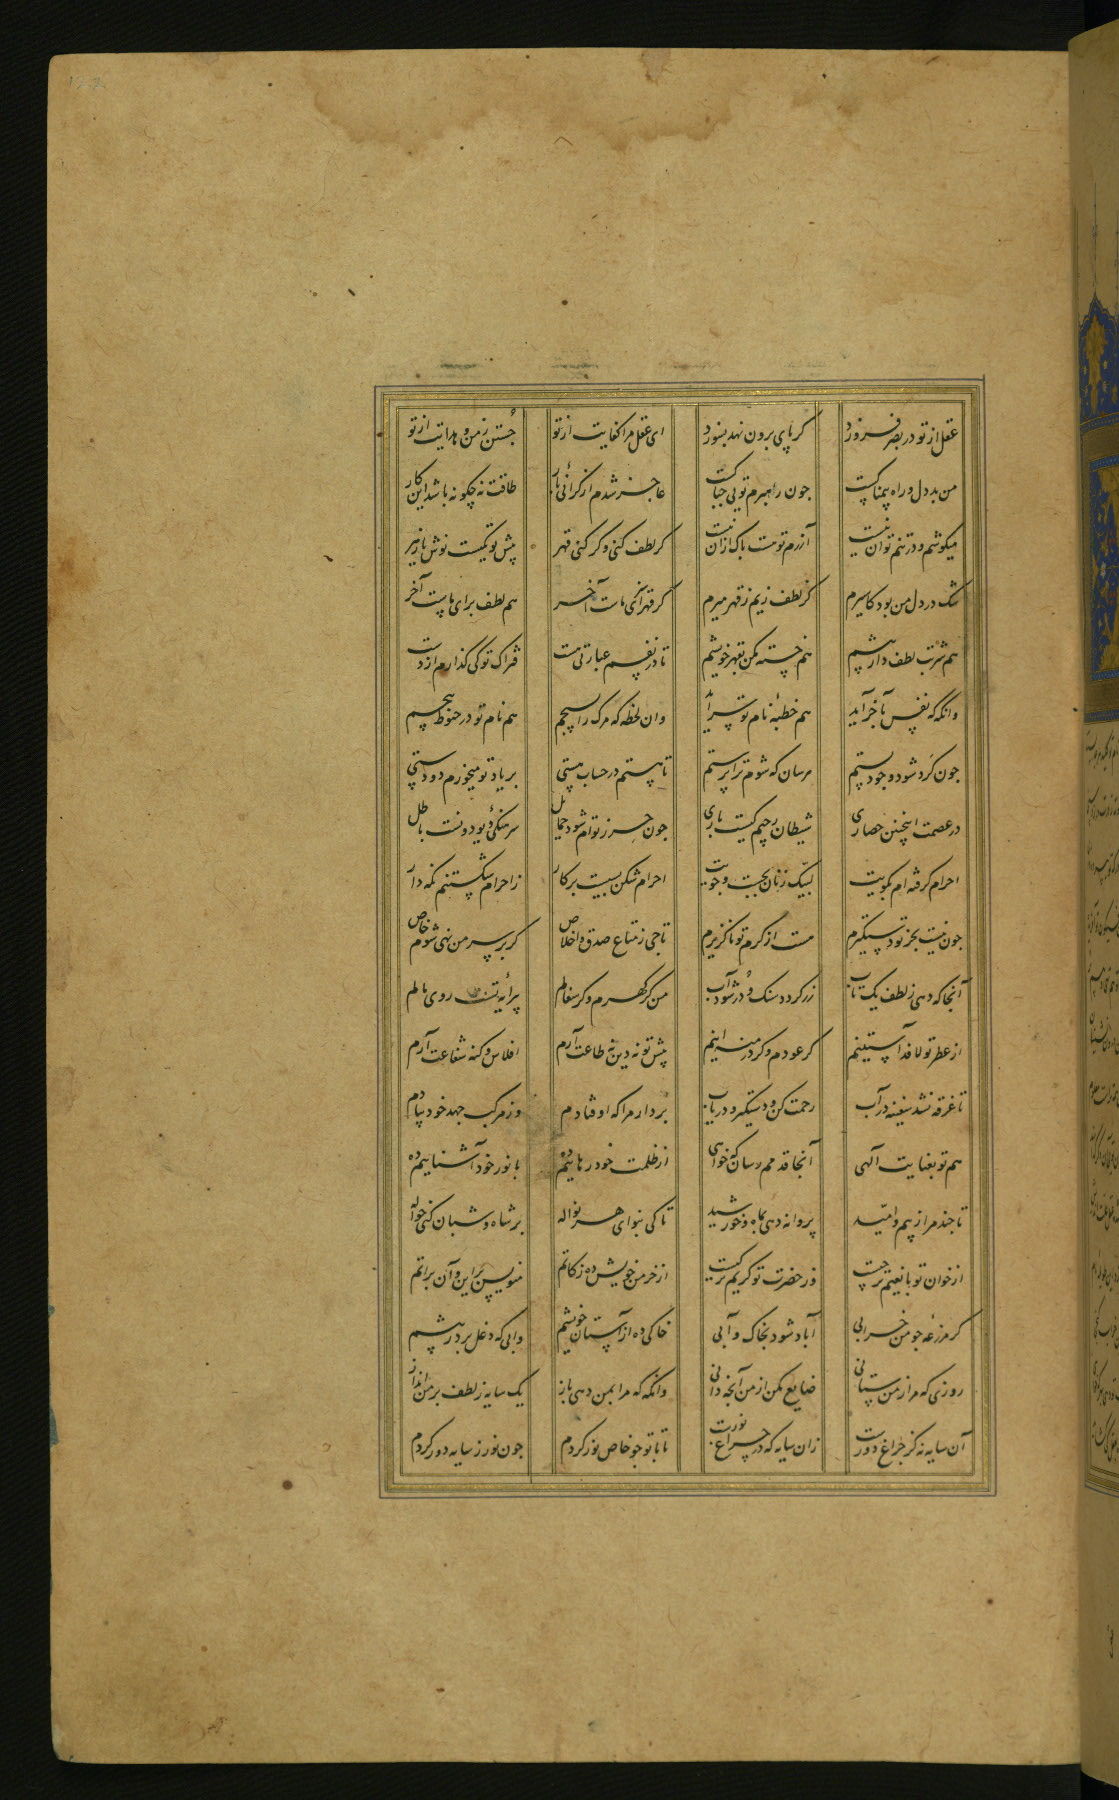 عقل از تو در بصر فروزد گر پای برون نهد بسوزد ای عقل مرا کفایت از تو جستن ز من و هدایت از تو
من بددل و راه بیمناکست چون راهبرم تویی چه باکست عاجز شدم از گرانی بار طاقت نه چگونه باشد این کار
میکوشم و در تنم توان نیست آزرم تو هست باک ازان نیست گر لطف کنی و گر کنی قهر پیش تو یکیست نوش یا زهر
شک در دل من بود کاسیرم کز لطف زیم ز قهر میرم گر قهر ماست آخر هم لطف برای ماست آخر
هم شربت لطف دار پیشم هم خسته مکن بقهر خویشم تا در نفسم عبارتی هست فتراک تو کی گذارم از دست
وانگه که نفس بآخر آید هم خطبهٔ نام تو سراید وان لحظه که مرگ را بسیجم هم نام تو در حنوط پیچم
چون گرد شود وجود پستم هرسان که شوم ترا پرستم تا هستم در حساب هستی بر یاد تو میخورم دو دستی
در عصمت اینچنین حصاری شیطان رجیم کیست باری چون حرز توام شود حمایل سرهنگی دیو دونست باطل
احرام گرفته ام بکویت لبیک زنان بجست و جویت احرام شکن بسیست برکار زاحرام شکستنم نگه دار
چون نیست بجز تو دستگیرم هست از کرم تو ناگزیرم تاجی ز متاع صدق و اخلاص گر بر سر من نهی شوم خاص
آنجا که دهی ز لطف یک تاب زر گردد سنگ و در شود آب من گر گهرم وگر سفالم پیرایهٔ تست روی مالم
از عطر تو لافد آستینم گر عودم و گر درمنه اینم پیش تو نه دین نه طاعت آرم افلاس و گنه شفاعت آرم
تا غرقه نشد سفینه در آب رحمت کن و دستگیر و دریاب بردار مرا که اوفتادم وز مرکب جهد خود پیادم
هم تو بعنایت آلهی آنجا قدمم رسان که خواهی از ظلمت خود رهاییم ده با نور خود آشناییم ده
تا چند مرا ز بیم و امید پروانه دهی بماه و خورشید تا کی بنوای هر نواله بر شاه و شبان کنی حواله
از خوان تو با نعیم تر چیست وز حضرت تو کریم تر کیست از خرمن خویش ده زکاتم منویس بر این و آن براتم
گر مزرعه چو من خرابی آباد شود بخاک و آبی خاکی ده از آستان خویشم وابی که دغل برد ز پیشم
روزی که مرا ز من ستانی ضایع مکن از من آنچه دانی وانگه که مرا بمن دهی باز یک سایه ز لطف بر من انداز
آن سایه نه کز چراغ دورست زان سایه که در چراغ نورست تا با تو چو خاص نور گردم چون نور ز سایه دور گردم